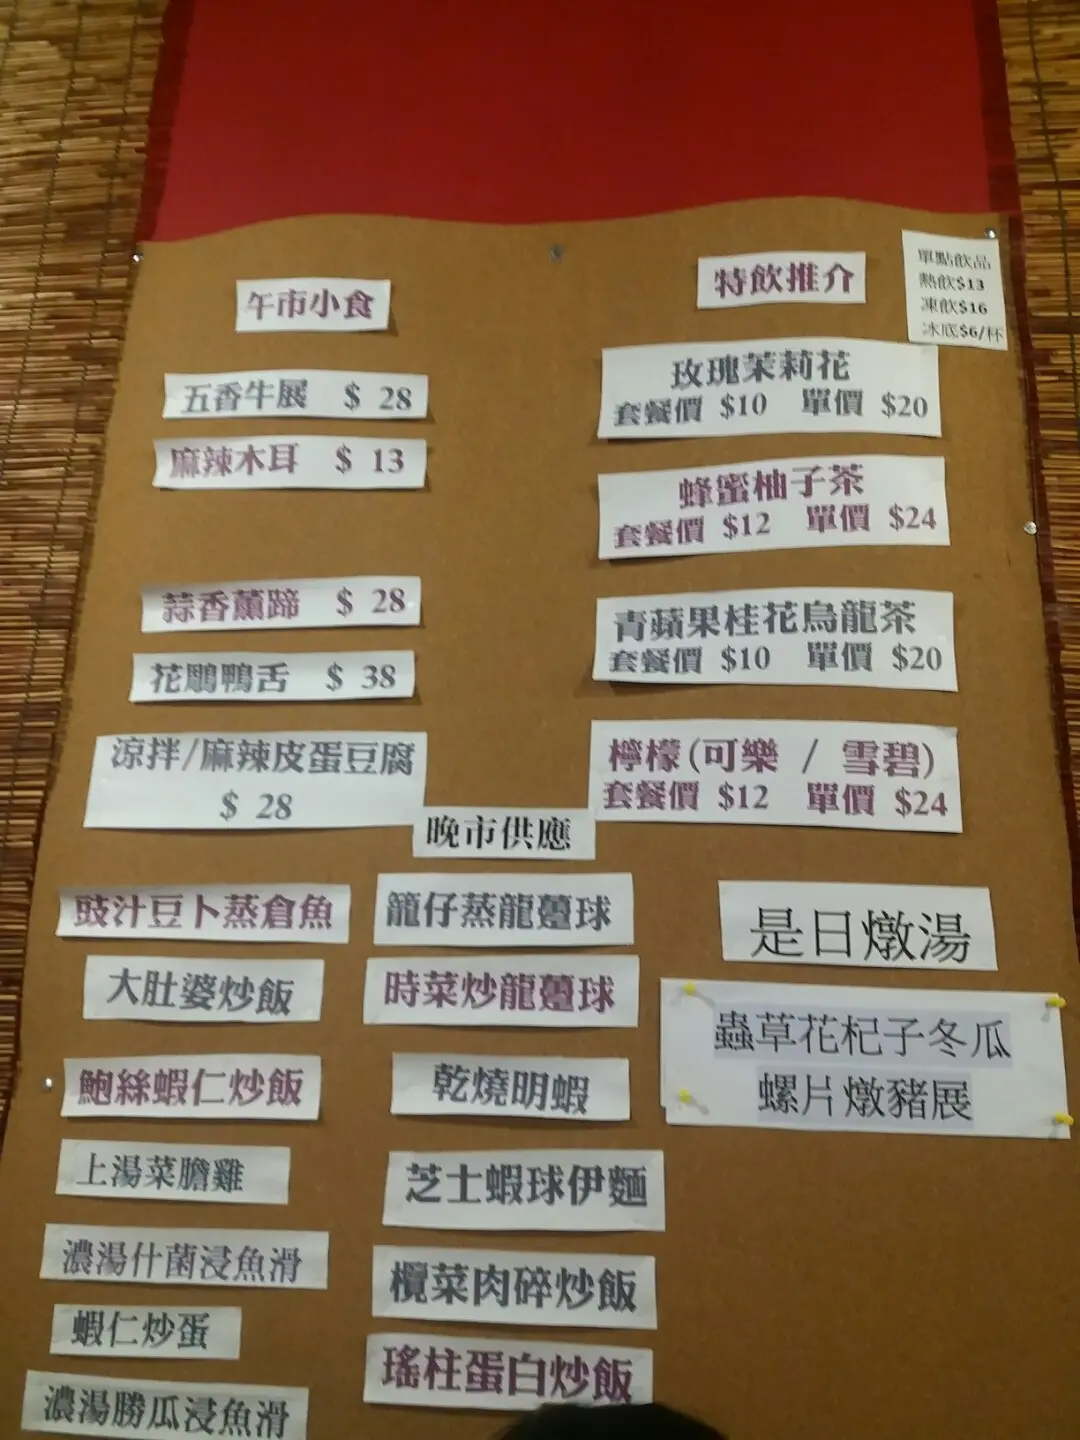 午市小食
五香牛展 $ 28
麻辣木耳 $ 13
蒜香薰蹄 $ 28
花鵰鴨舌 $ 38
涼拌/麻辣皮蛋豆腐
$ 28
特飲推介
單點飲品
熱飲$13
凍飲$16
冰底$6/杯
玫瑰茉莉花
套餐價 $10 單價 $20
蜂蜜柚子茶
套餐價 $12 單價 $24
青蘋果桂花烏龍茶
套餐價 $10 單價 $20
檸檬(可樂 / 雪碧)
套餐價 $12 單價 $24
晚市供應
豉汁豆卜蒸倉魚
大肚婆炒飯
鮑絲蝦仁炒飯
上湯菜膽雞
濃湯什菌浸魚滑
蝦仁炒蛋
濃湯勝瓜浸魚滑
籠仔蒸龍躉球
時菜炒龍躉球
乾燒明蝦
芝士蝦球伊麵
欖菜肉碎炒飯
瑤柱蛋白炒飯
是日燉湯
蟲草花杞子冬瓜
螺片燉豬展